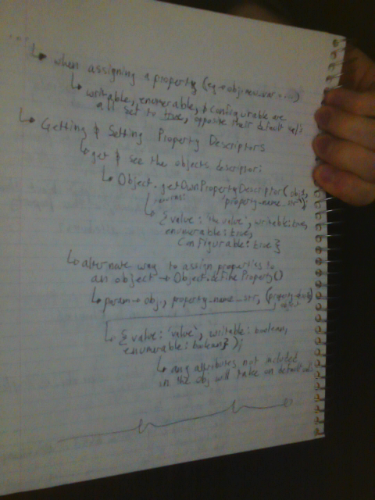 ↳ when assigning a property (eg → obj.newvar = )
↳ writable, enumerable, & configurable are
all set to true, opposite their default
↳ Getting & Setting Property Descriptors
↳ get & see the objects descriptor:
↳ Object.getOwnPropertyDescriptor(obj,
returns: 'property_name_str')
↳ {value: 'its value', writable: true,
enumerable: true,
configurable: true}
↳ alternate way to assign properties to
an object → Object.defineProperty()
↳ param → obj, property_name_str,
↳ {value: 'value', writable: boolean,
enumerable: boolean});
↳ any attributes not included
in the obj will take on default